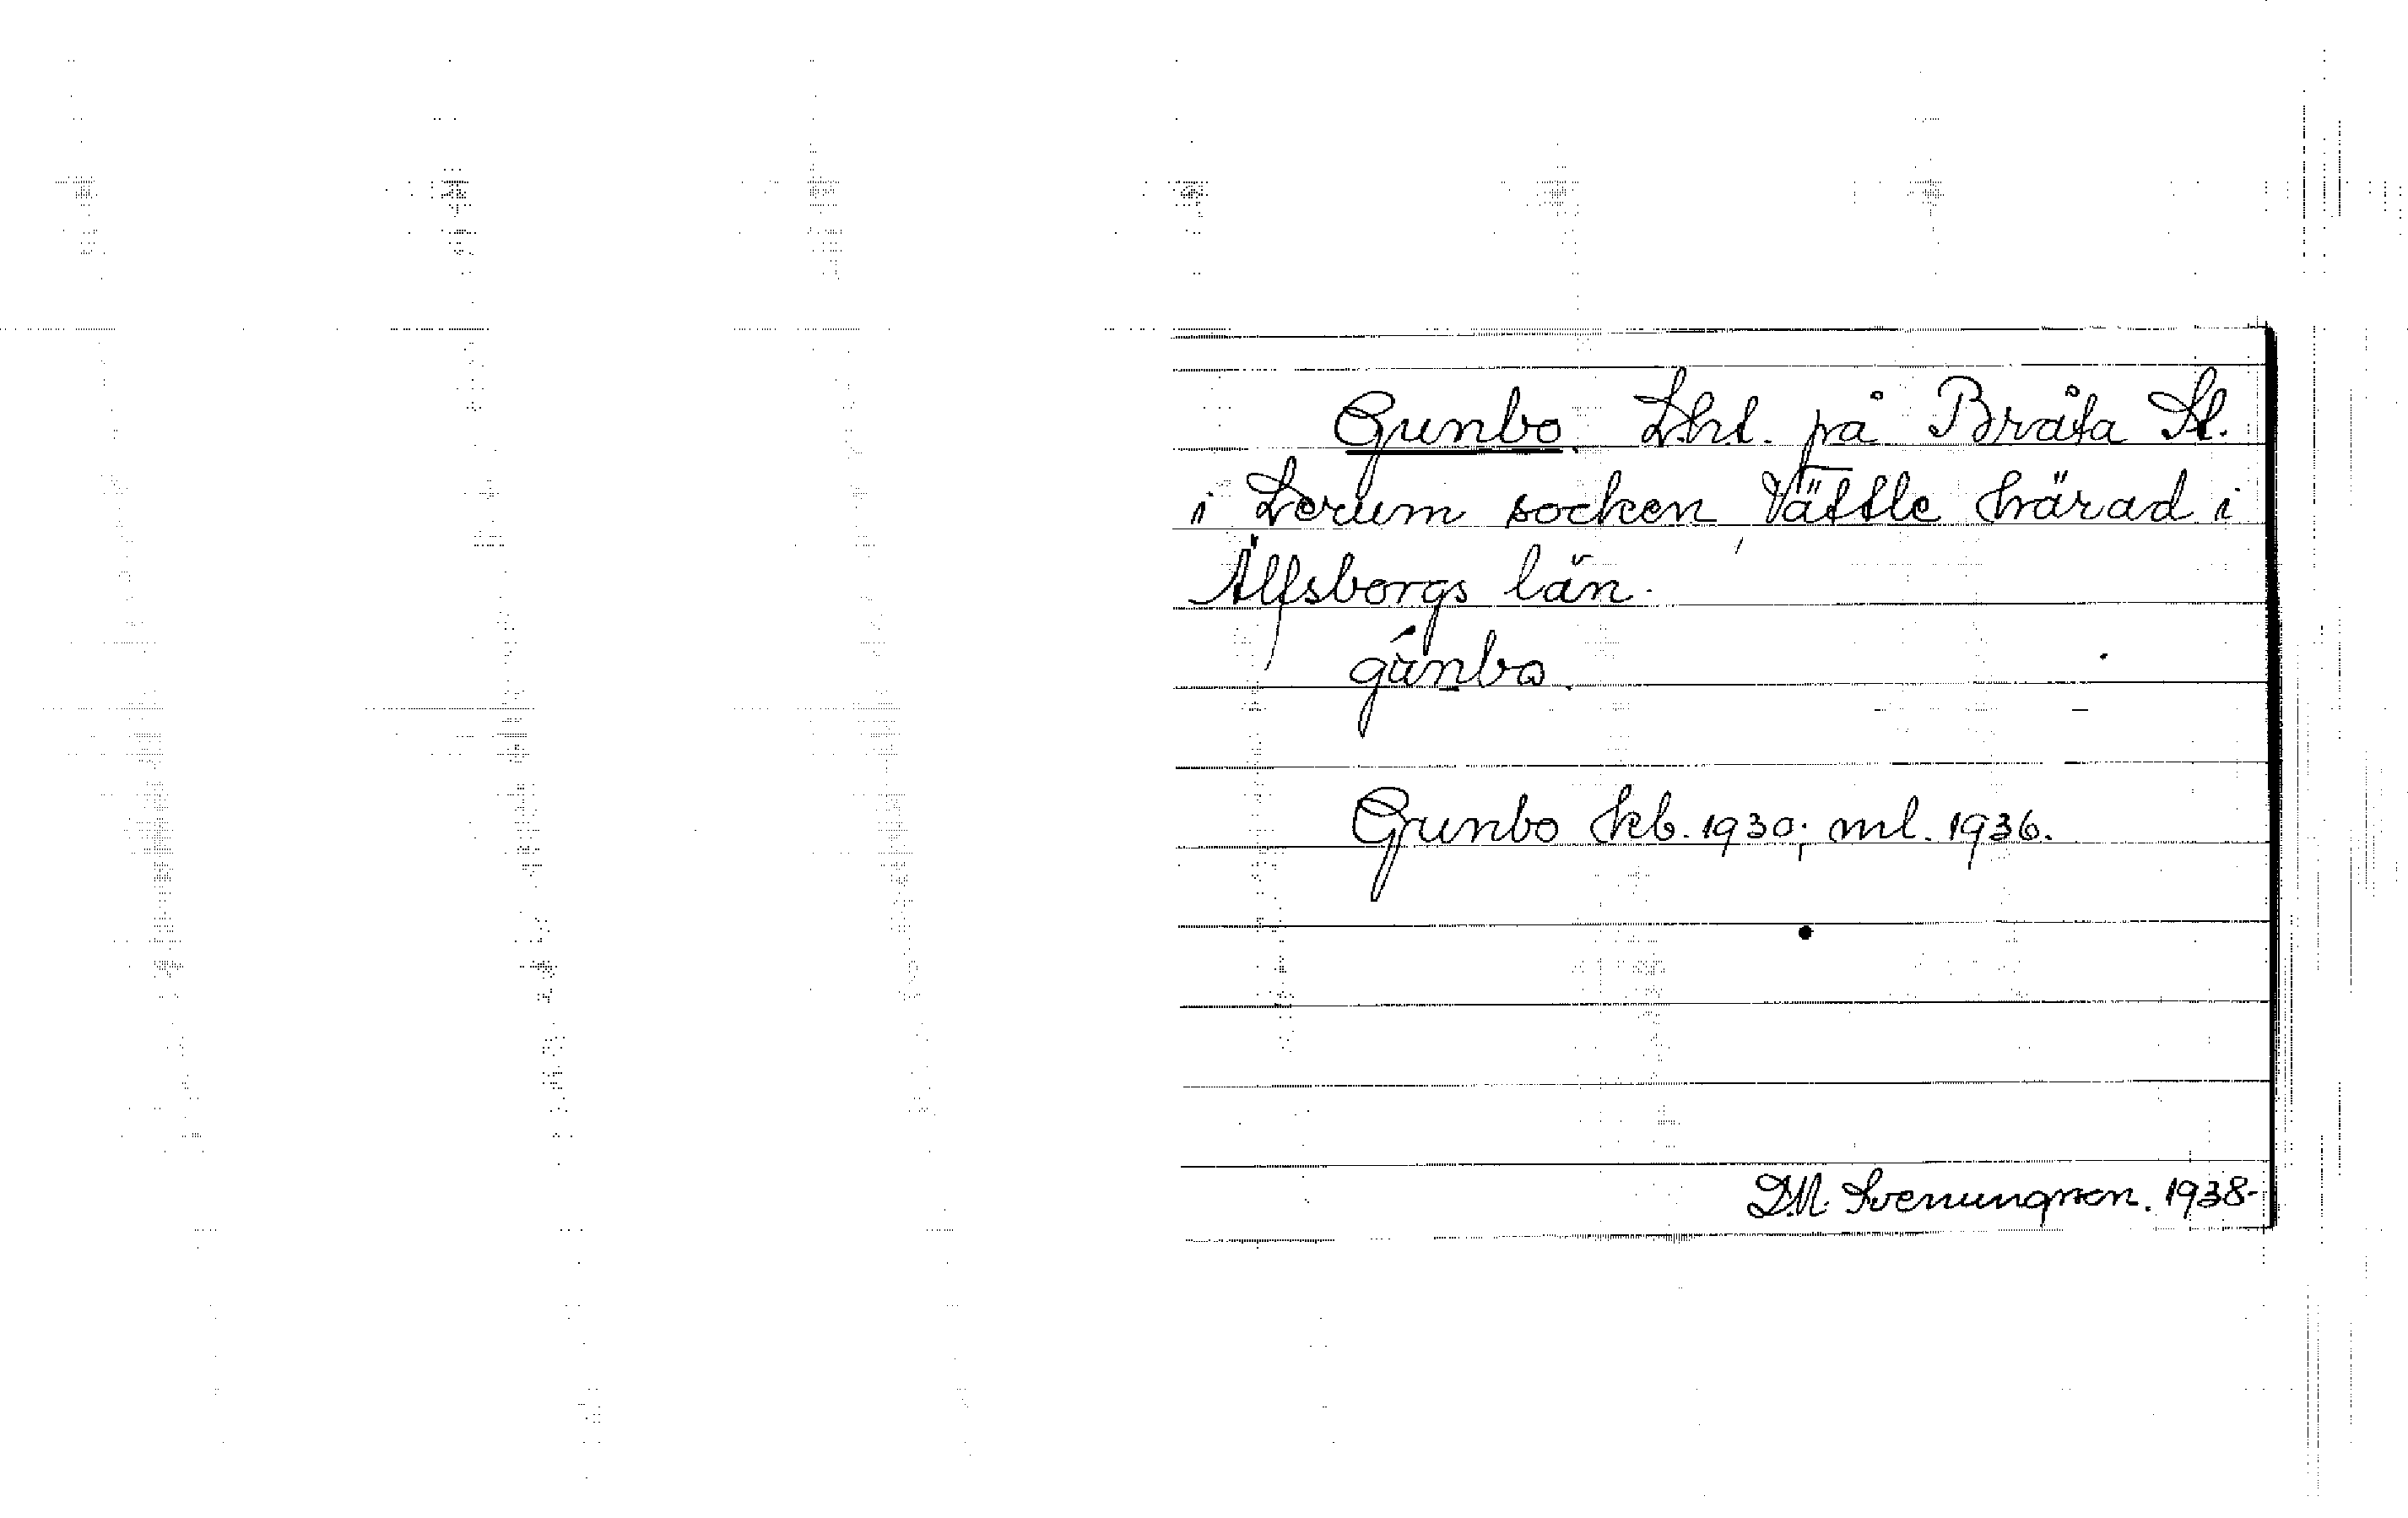 Gunbo. Lht. på Bråta St.
i Lerum socken, Vättle härad i
Älfsborgs län.
gúnbo.
Gunbo kb. 1930; ml. 1936.
D.M. Svenungsson. 1938-